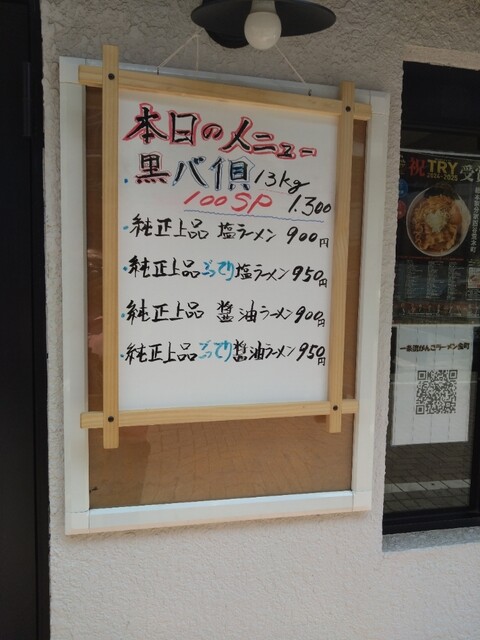 本日のメニュー
・黒バ倶 13kg
100SP 1.300
・純正上品 塩ラーメン 900円
・純正上品こってり塩ラーメン 950円
・純正上品 醤油ラーメン 900円
・純正上品こってり醤油ラーメン 950円
祝TRY
2024-2025
一条流がんこラーメン